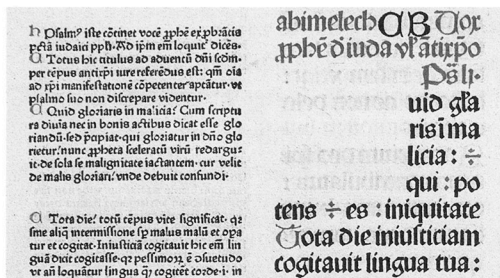 Psalmꝰ iste cōtinet vocē ꝓphē exꝓbrātis
ꝑfcā iudaici ppli. Ad ipm em̄ loquit̄ dicēs.
Totus hic titulus ad aduentū dnī secūm
per tēpus antixpi iure referēdus est: qm̄ oīa
ad xpi manifestationē cōpetenter aptātur. vt
psalmo suo non discrepare videntur.
Quid gloriaris in malicia? Cum scriptu
ra diuīa nec in bonis actibus dicat esse glo
riandū. sed p̄cipiat. qui gloriatur in dnō glo
rietur. nunc ꝓpheta sceleratū virū redargu
it. de sola se malignitate iactantem. cur velit
de malis gloriari. vnde debuit confundi.
Tota die. totū tēpus vite significat. qꝛ
sine aliq̄ intermissione sp̄ malus malū et opa
tur et cogitat. Iniusticiā cogitauit hic em̄ lin
guā dicit cogitasse. qꝛ pessimoꝝ ē ɔsuetudo
vt an̄ loquātur lingua q̄ꝫ cogitēt corde. i. in
abimelech CB Vox
ꝓphē d' iuda vl' ātixp̄o
Ps li.
uid gl'a
ris ī ma
licia: ÷
qui: po
tens ÷ es: iniquitate
Tota die iniusticiam
cogitauit lingua tua: